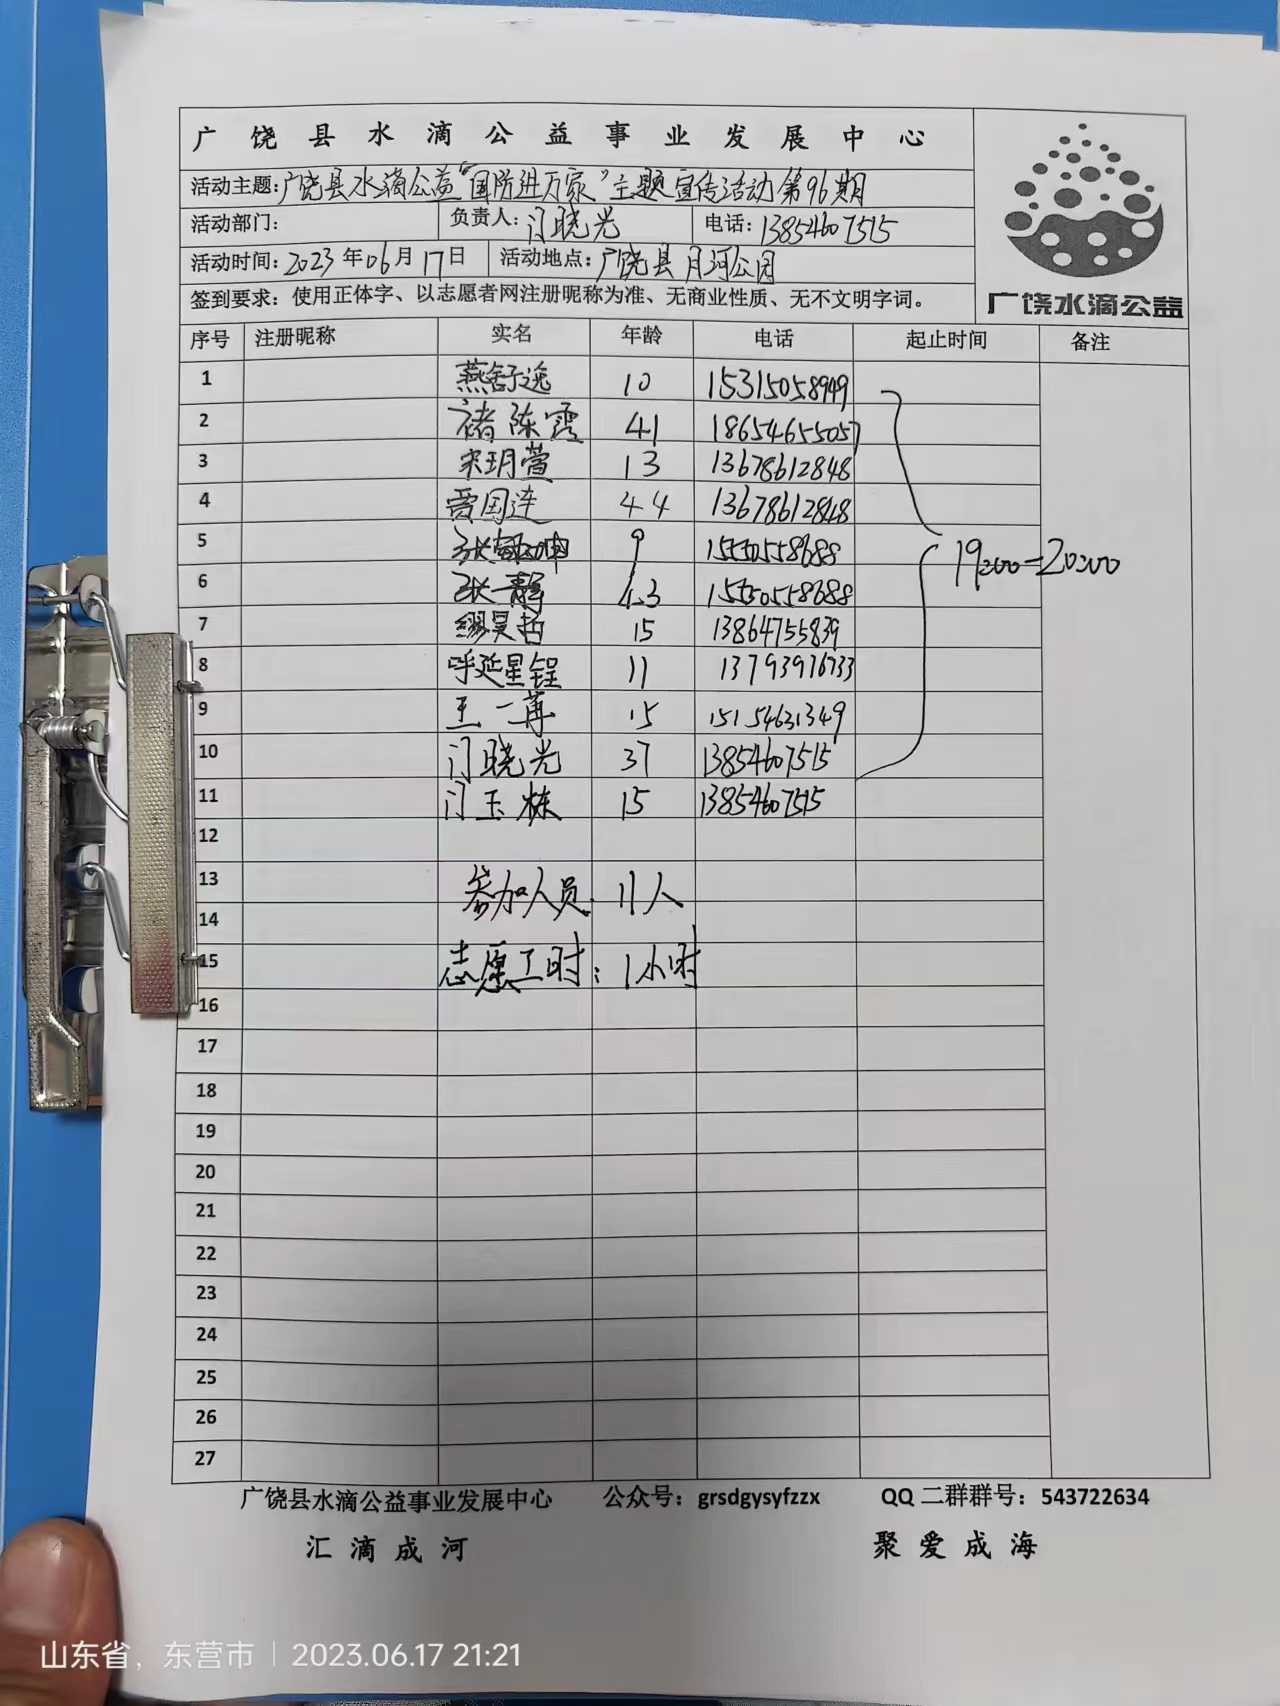 广饶县水滴公益事业发展中心
活动主题:广饶县水滴公益“国防进万家”主题宣传活动第96期
活动部门: 负责人:门晓光 电话:13854607515
活动时间:2023年06月17日 活动地点:广饶县月河公园
签到要求:使用正体字、以志愿者网注册昵称为准、无商业性质、无不文明字词。
广饶水滴公益
序号 注册昵称 实名 年龄 电话 起止时间 备注
1 燕舒逸 10 15315058949
2 褚陈霞 41 18654655057
3 宋玥萱 13 13678612848
4 贾国连 44 13678612848
5 张 坤 9 15550558688
6 张静 43 15550558688
7 缪昊哲 15 13864755839
8 呼延星锃 11 13793976733
9 王一苒 15 15154631349
10 门晓光 37 13854607515
11 门玉栋 15 13854607515
19:00-20:00
12
13 参加人员 11人
14
15 志愿工时:1小时
16
17
18
19
20
21
22
23
24
25
26
27
广饶县水滴公益事业发展中心 公众号:grsdgysyfzzx QQ二群群号:543722634
汇滴成河 聚爱成海
山东省,东营市 | 2023.06.17 21:21